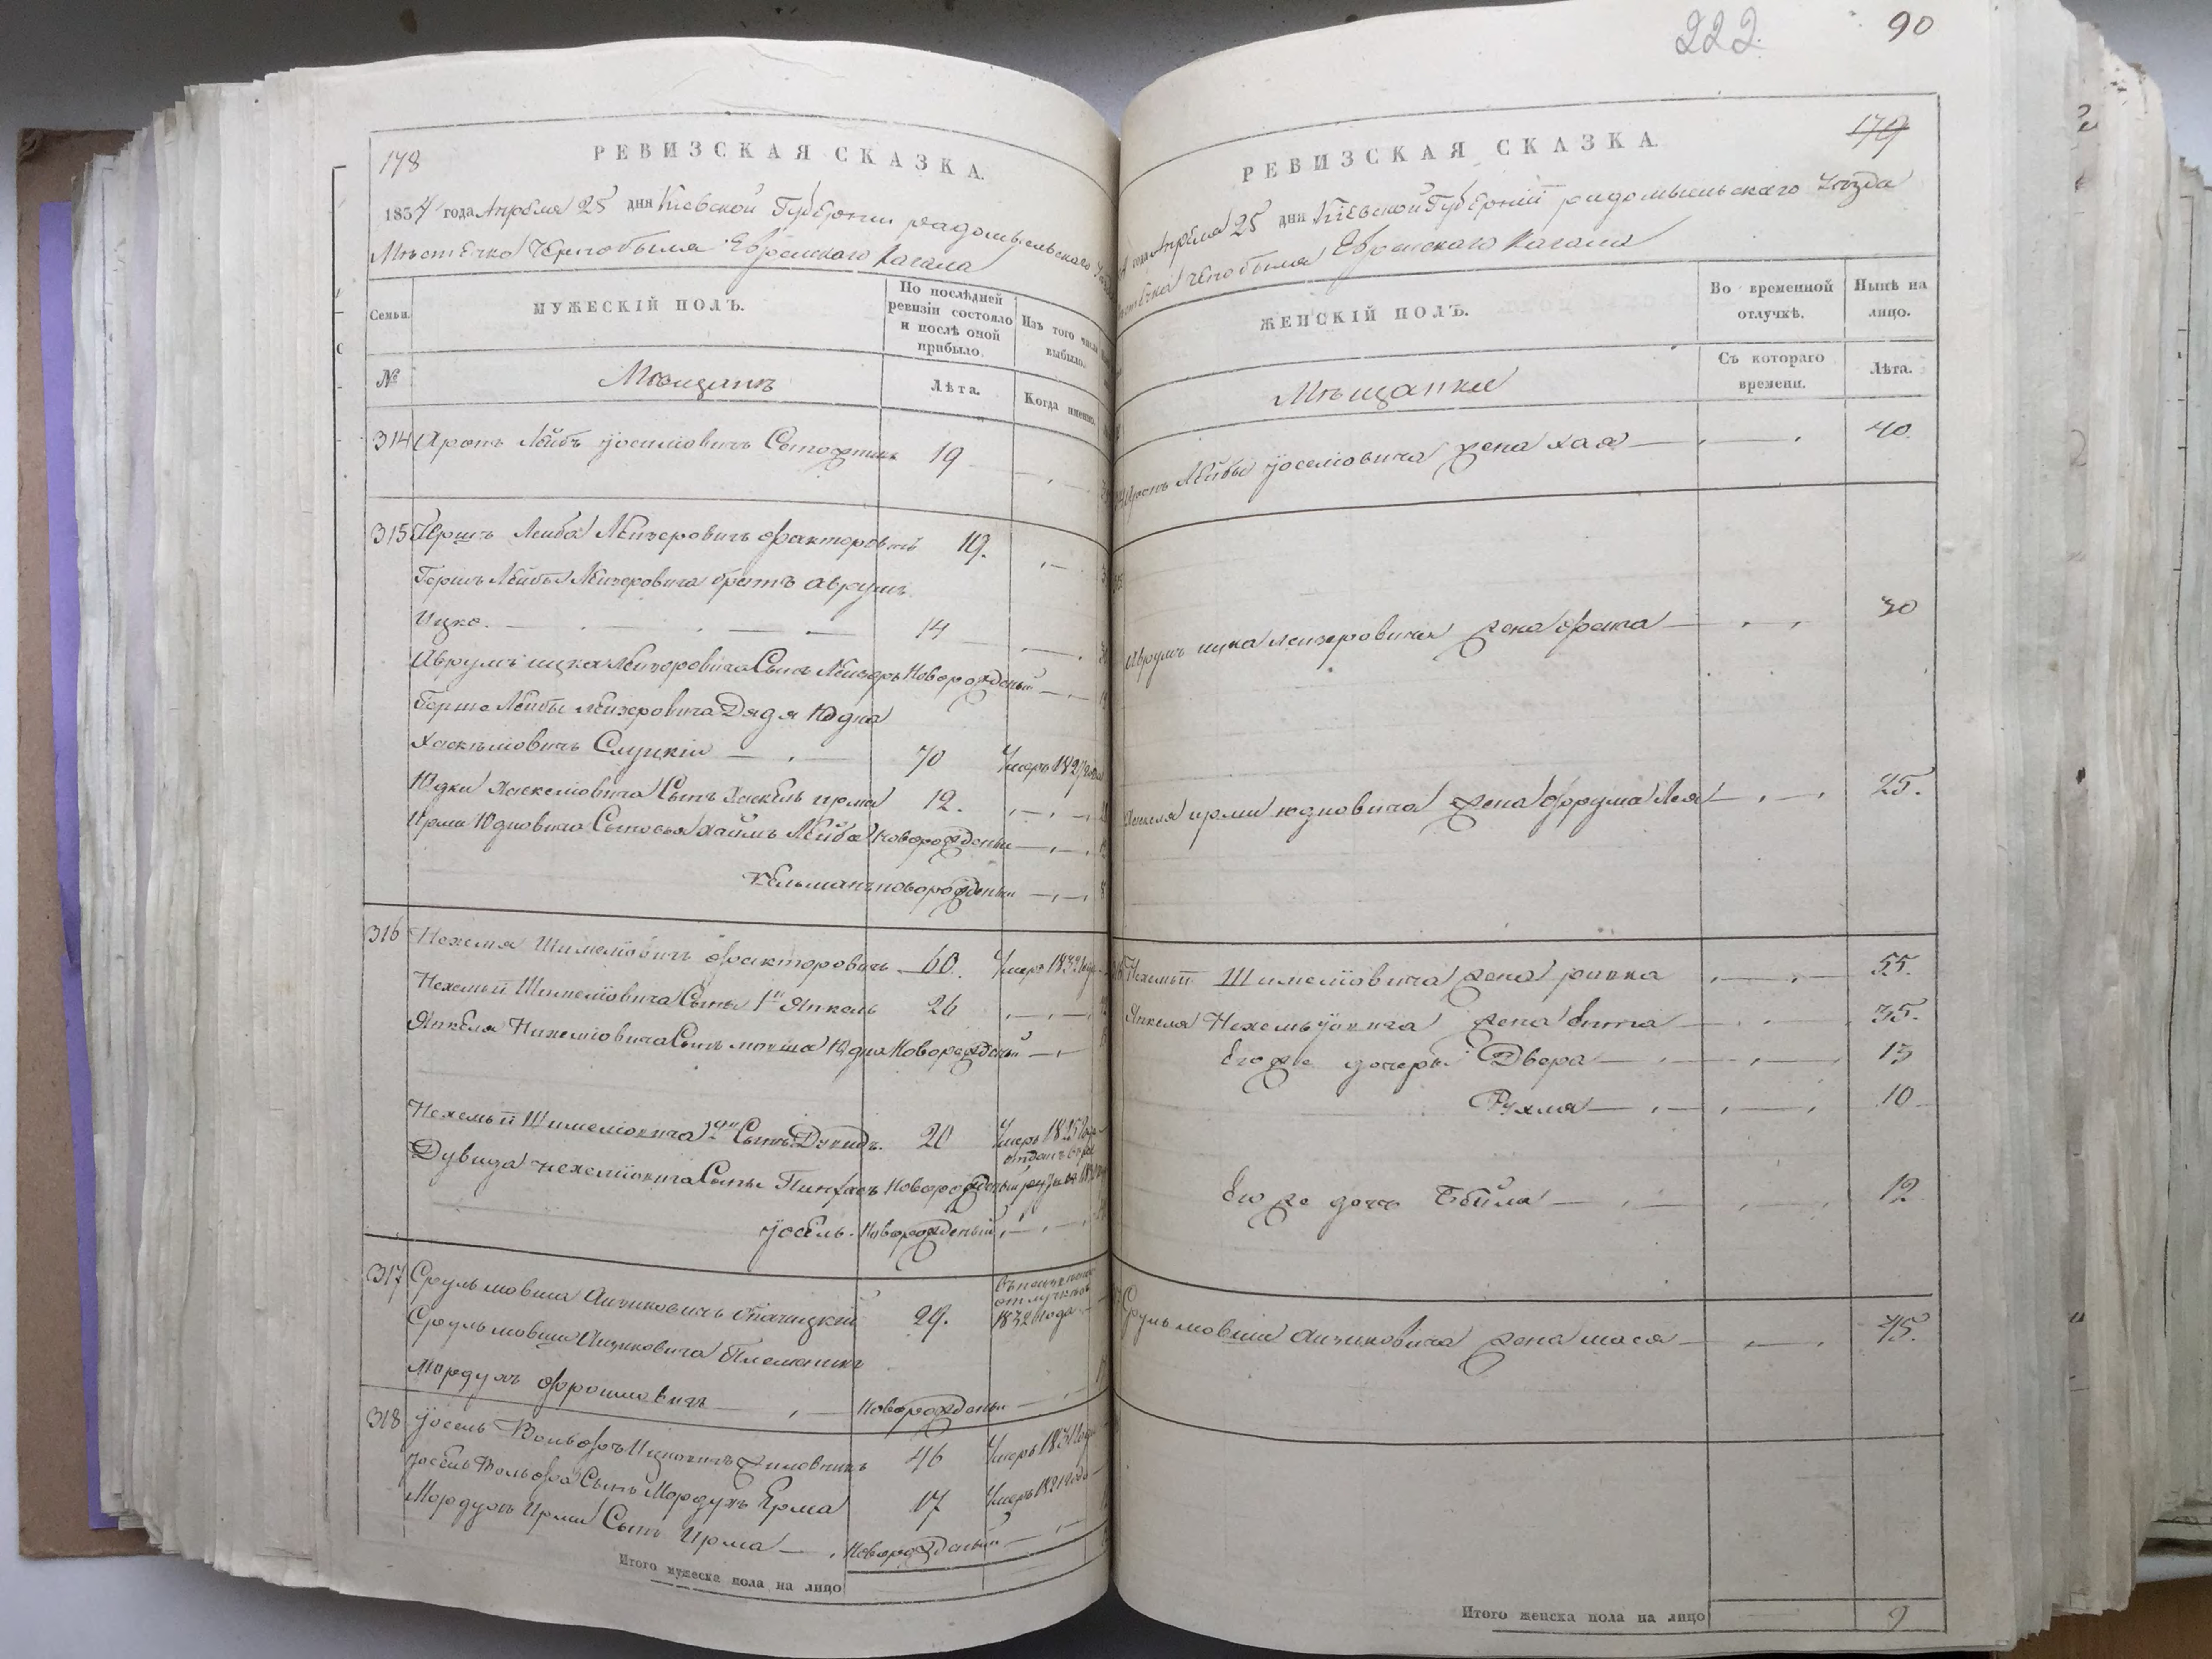 178
РЕВИЗСКАЯ СКАЗКА.
1834 года Апреля 25 дня Киевской Губернии радомысльского
Мѣстечко Чернобыля Еврейского Кагала
Семьи.
МУЖЕСКІЙ ПОЛЪ.
По послѣдней ревизіи состояло и послѣ оной прибыло.
Изъ того числа выбыло.
№
Мѣщанъ
Лѣта.
Когда именно.
314 Аронъ Лейбъ Іоселіовичъ 19
315 Гершъ Лейба Лейзеровичъ 19.
Гершъ Лейбы Лейзеровича братъ Аврумъ
Ицко. 14
Аврумъ ицка Лейзеровича Сынъ Лейзеръ Новорожденый
Герша Лейбы Лейзеровича Дядя Юдка
Хаскеліовичъ Слуцкій 70 Умеръ 1827 года
Юдки Хаскеліовича Сынъ Хаскель ирма 12.
Ирми Юдковича Сыновья Хаимъ Лейба новорожденый
Кельманъ новорожденый
316 Нехемя Шимеліовичъ Факторовичъ 60. Умеръ 1832 года
Нехемьи Шимеліовича Сынъ 1й Янкель 26
Янкеля Нихеміовича Сынъ мовша Юдка Новорожденый
Нехемьи Шимеліовича 2й Сынъ Дувидъ. 20 Умеръ 1825 года
Дувида нехеміовича Сынъ Пинхасъ Новорожденый
Іосель. Новорожденый
317 Сруль мовша Аизиковичъ 29. 1832 года
Сруль мовши Аизиковича Племянникъ
Мордухъ Фроимовичъ Новорожденый
318 Іосель Вольфъ 46 Умеръ 1831 года
Іосель Вольфа Сынъ Мордухъ Ерма 17 Умеръ 1821 года
Мордухъ Ирми Сынъ Ирма Новорожденый
Итого мужеска пола на лицо
222.
90
179
РЕВИЗСКАЯ СКАЗКА.
года Апреля 25 дня Кіевской Губерніи радомысльского Уѣзда
Чернобыля Еврейского Кагала
ЖЕНСКІЙ ПОЛЪ.
Во временной отлучкѣ.
Нынѣ на лицо.
Мѣщанки
Съ котораго времени.
Лѣта.
Аронъ Лейбы Іоселіовича жена хая 40.
Аврумъ ицка лейзеровича жена фейга 30
Хаскеля ирми юдковича жена фрума Лея 25.
Нехемьи Шимеліовича жена ривка 55.
Янкеля Нехемьіовича жена 35.
Его же дочери Двера 15
Рухля 10
Его же дочь Бейла 12
Сруль мовши Аизиковича жена мася 45.
Итого женска пола на лицо 9